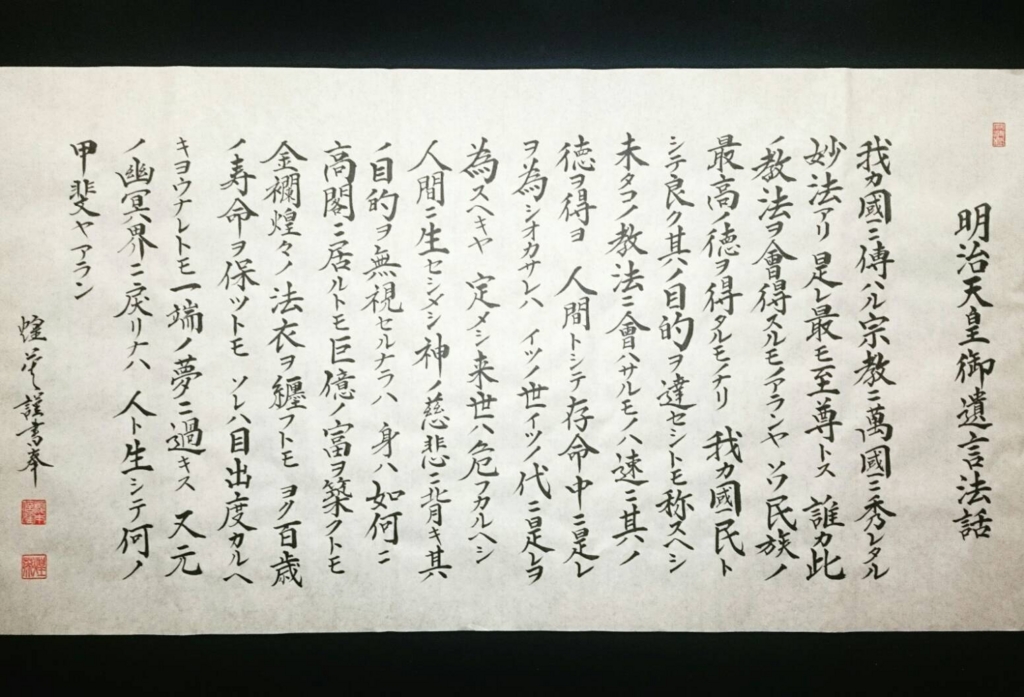 明治天皇御遺言法話
我カ國ニ傳ハル宗教ニ萬國ニ秀レタル
妙法アリ是レ最モ至尊トス 誰カ此
ノ教法ヲ會得スルモノアランヤ ソノ民族ノ
最高ノ徳ヲ得タルモノナリ 我カ國民ト
シテ良ク其ノ目的ヲ達セシトモ称スヘシ
未タコノ教法ニ會ハサルモノハ速ニ其ノ
徳ヲ得ヨ 人間トシテ存命中ニ是レ
ヲ為シオカサレハ イツノ世イツノ代ニ是レヲ
為スヘキヤ 定メシ来世ハ危フカルヘシ
人間ニ生セシメシ神ノ慈悲ニ背キ其
ノ目的ヲ無視セルナラハ 身ハ如何ニ
高閣ニ居ルトモ巨億ノ富ヲ築クトモ
金襴煌々ノ法衣ヲ纒フトモ ヨク百歳
ノ寿命ヲ保ツトモ ソレハ目出度カルヘ
キヨウナレトモ一端ノ夢ニ過キス 又元
ノ幽冥界ニ戻リナハ 人ト生シテ何ノ
甲斐ヤアラン
謹書奉